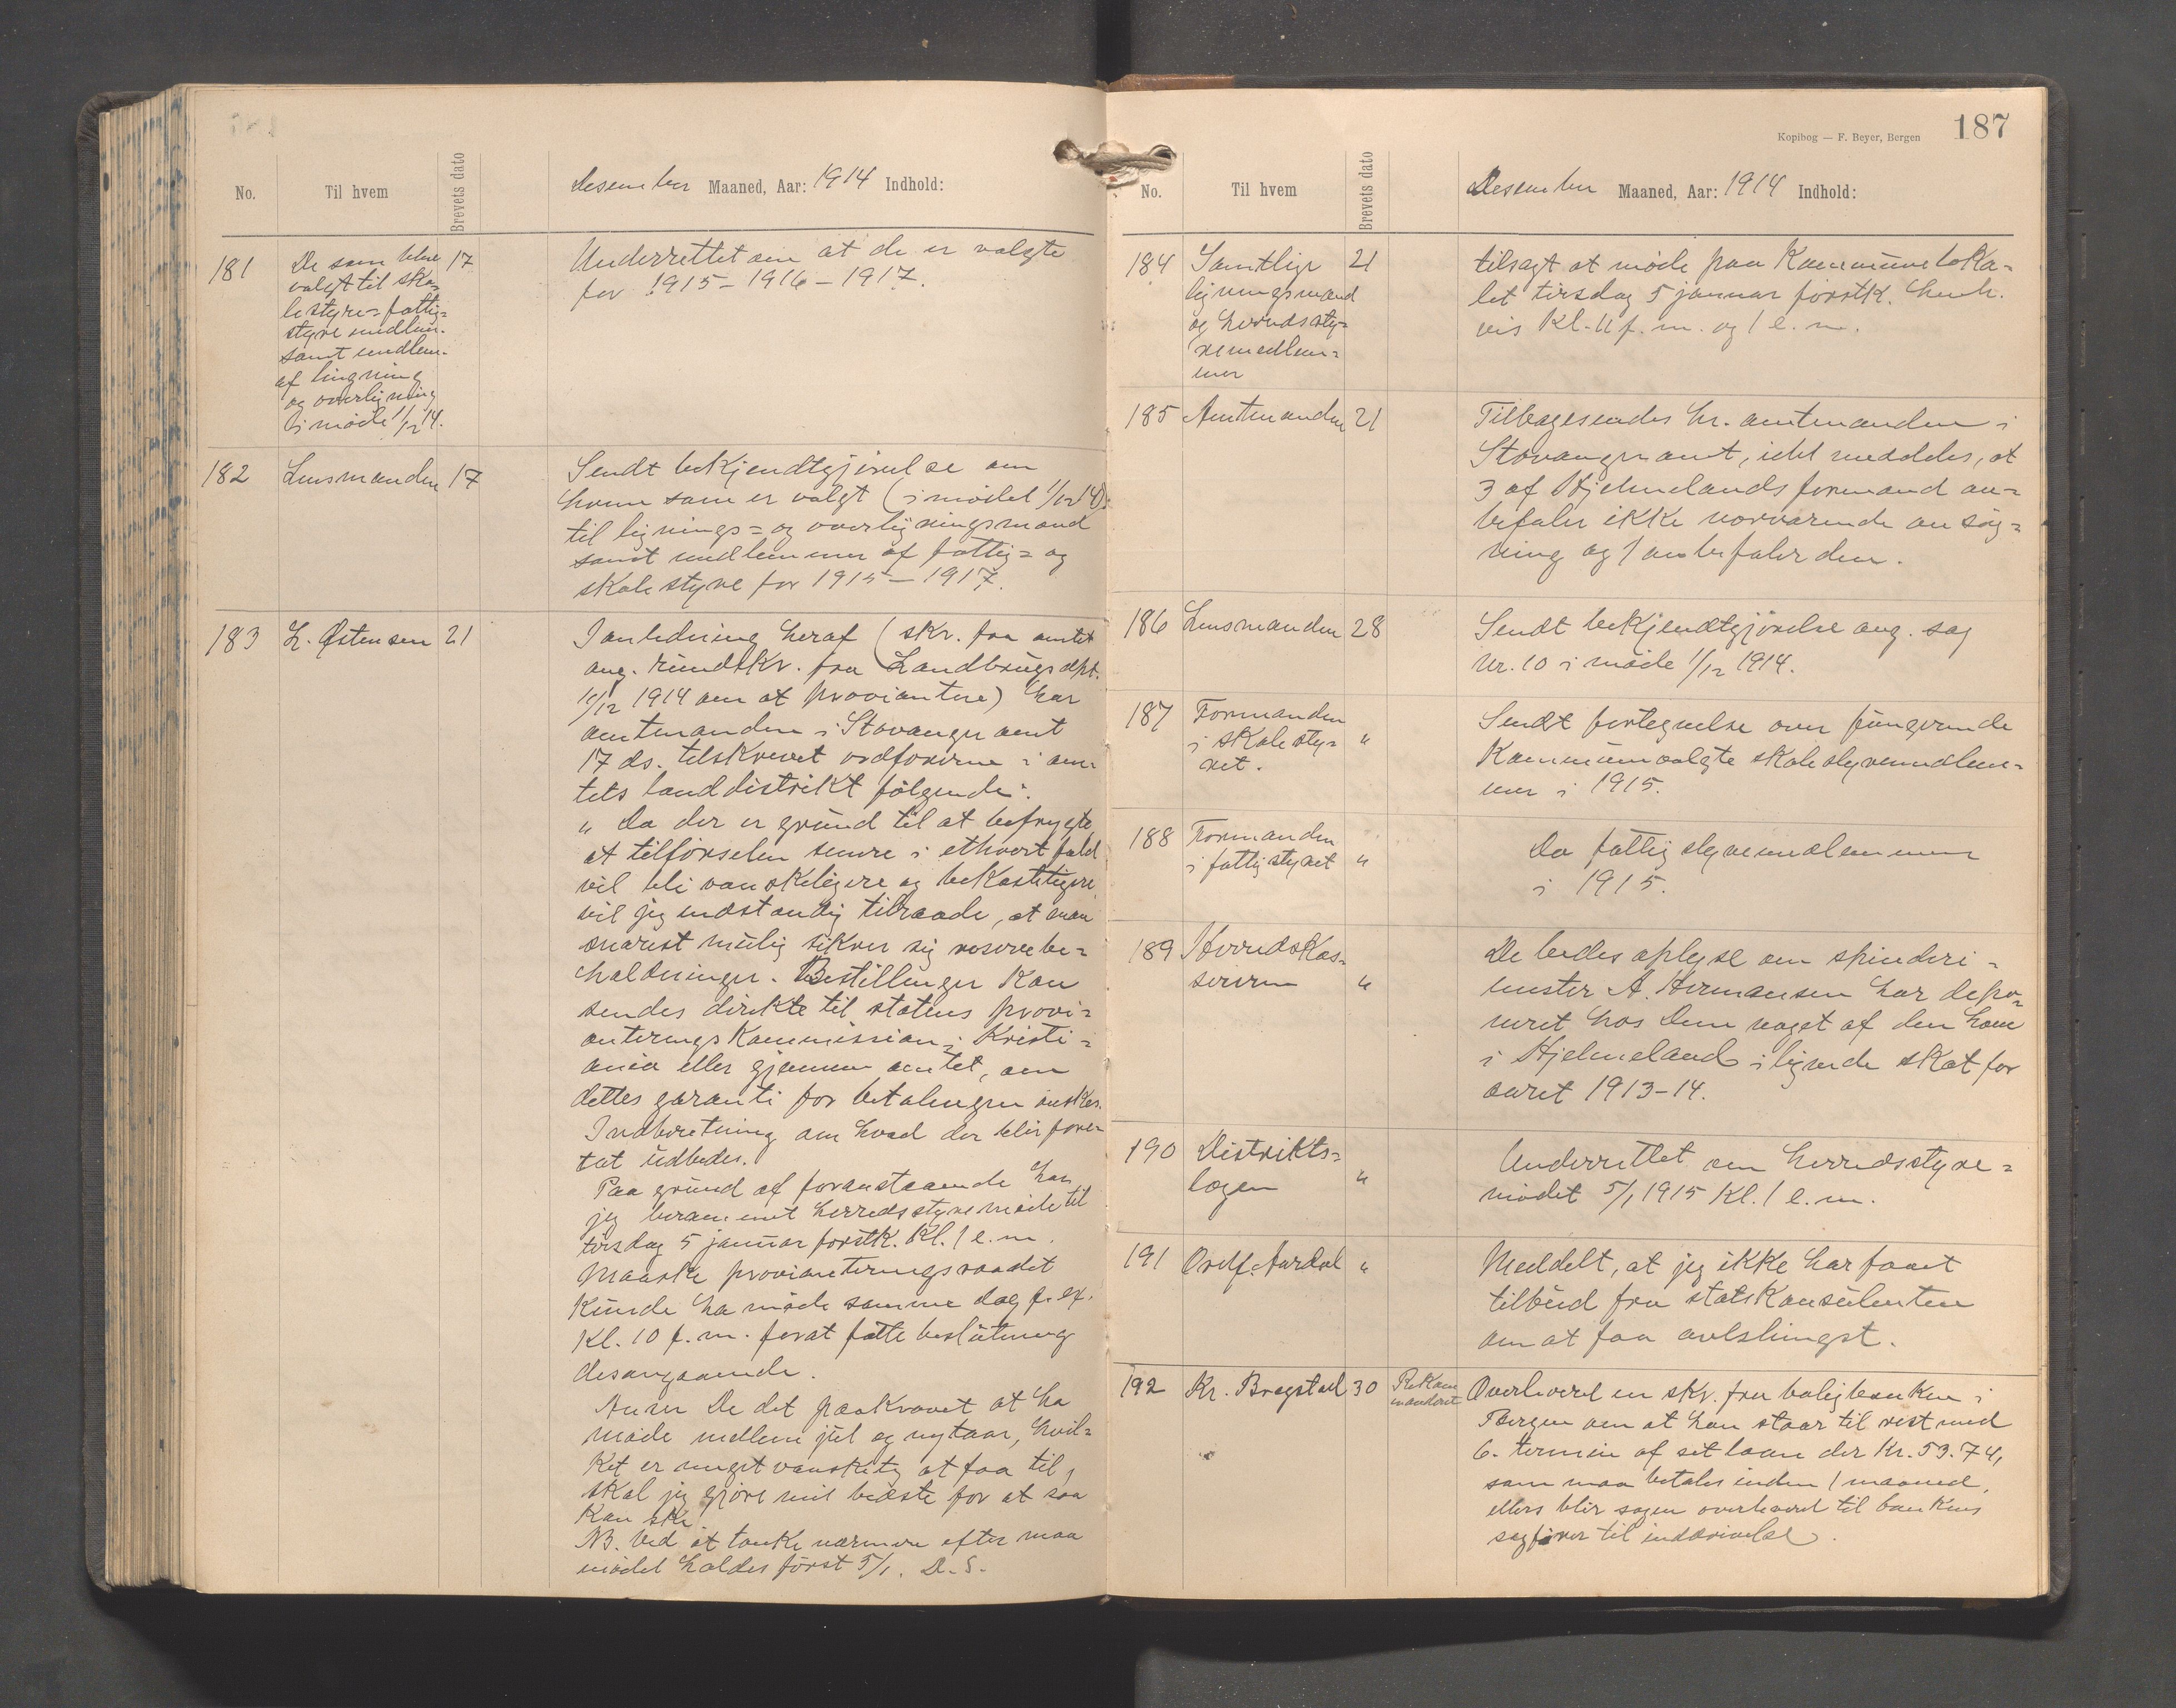 No.
Til hvem
Brevets dato
Desember Maaned, Aar: 1914 Indhold:
181
De som blev
valgt til sko-
lestyre- fattig-
styre medlem.
samt medlem.
af ligning
og overligning
i møde 1/12 14.
17
Underrettet om at de er valgte
for 1915-1916-1917.
182
Lensmanden
17
Sendt bekjendtgjørelse om
hvem som er valgt (i mødet 1/12 14)
til lignings- og overligningsmænd
samt medlemmer af fattig- og
skolestyre for 1915-1917.
183
L. Østensen
21
I anledning heraf (skr. fra amtet
ang. rundskr. fra Landbrugsdept.
1914 om at proviantere) har
amtmanden i Stavanger amt
17 ds. tilskrevet ordførerne i am-
tets landdistrikt følgende:
" Da der er grund til at befrygte
at tilførselen senere i ethvert fald
vil bli vanskeligere og bekosteligere
vil jeg indstændig tilraade, at man
snarest mulig sikrer sig reservebe-
holdninger. Bestillinger kan
sendes direkte til statens provi-
anterings kommission i Kristi-
ania eller gjennem amtet, om
dettes garanti for betalingen ønskes.
Indberetning om hvad der blir fore-
tat udbedes.
Paa grund af foranstaaende har
jeg berammet herredsstyremøde til
tirsdag 5 januar førstk. Kl. 1 e.m.
Maaske provianteringsraadet
kunde ha møde samme dag f. ex.
Kl. 10 f.m. forat fatte beslutning
desangaaende.
Anser De det paakrævet at ha
møde mellem jul og nytaar, hvil-
ket er meget vanskelig at faa til,
skal jeg gjøre mit bedste for at saa
kan ske.
NB. Ved at tænke nærmere efter maa
mødet holdes først 5/1. D.S.
187
Kopibog — F. Beyer, Bergen
No.
Til hvem
Brevets dato
Desember Maaned, Aar: 1914 Indhold:
184
Samtlige
ligningsmænd
og herredssty-
remedlem-
mer
21
tilsagt at møde paa Kommuneloka-
let tirsdag 5 januar førstk. henh.
vis Kl. 11 f.m. og 1 e.m.
185
Amtmanden
21
Tilbagesendes hr. amtmanden i
Stavanger amt, idet meddeles, at
3 af Hjelmelands formænd an-
befaler ikke nærværende ansøg-
ning og 1 anbefaler den.
186
Lensmanden
28
Sendt bekjendtgjørelse ang. sag
nr. 10 i møde 1/12 1914.
187
Formanden
i skolesty-
ret.
"
Sendt fortegnelse over fungerende
Kommunevalgte skolestyremedlem-
mer i 1915.
188
Formanden
i fattigstyret
"
Do fattigstyremedlemmer
i 1915.
189
Herredskas-
sereren
"
De bedes oplyse om spinderi-
mester A. Hermansen har depo-
neret hos Dem noget af den ham
i Hjelmeland ilignede skat for
aaret 1913-14.
190
Distrikts-
lægen
"
Underrettet om herredsstyre-
mødet 5/1 1915 Kl. 1 e.m.
191
Ordf. Aardal
"
Meddelt, at jeg ikke har faaet
tilbud fra statskonsulenten
om at faa avlshingst.
192
Kr. Bragstad
30
Rekom
manderet
Overleveret en skr. fra boligbanken i
Bergen om at han staar til rest med
6. termin af sit laan der Kr. 53.74,
som maa betales inden 1 maaned,
ellers blir sagen overleveret til bankens
sagfører til inddrivelse.